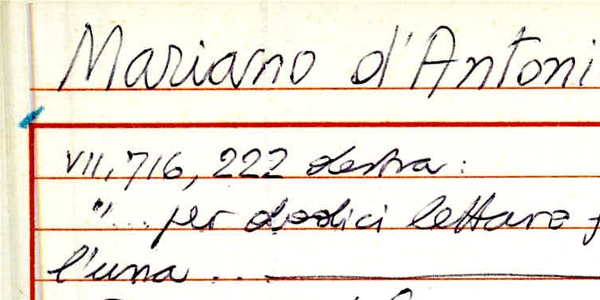 Mariano d'Antoni
VII, 716, 222 destra:
"... per dodici lettare f
l'una ...